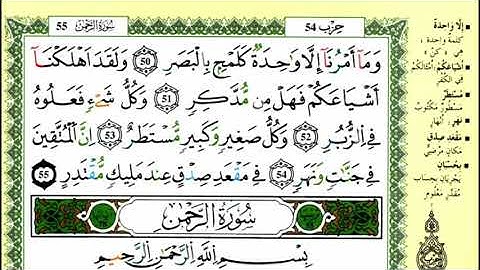 55 سُورَةُ الرَّحْمَٰن
حِزْب 54
وَمَآ أَمْرُنَآ إِلَّا وَٰحِدَةٌ كَلَمْحٍۭ بِالْبَصَرِ 50 وَلَقَدْ أَهْلَكْنَآ
أَشْيَاعَكُمْ فَهَلْ مِن مُّدَّكِرٍ 51 وَكُلُّ شَىْءٍ فَعَلُوهُ
فِى الزُّبُرِ 52 وَكُلُّ صَغِيرٍ وَكَبِيرٍ مُّسْتَطَرٌ 53 إِنَّ الْمُتَّقِينَ
فِى جَنَّٰتٍ وَنَهَرٍ 54 فِى مَقْعَدِ صِدْقٍ عِندَ مَلِيكٍ مُّقْتَدِرٍۭ 55
سُورَةُ الرَّحْمَٰن
بِسْمِ اللَّهِ الرَّحْمَٰنِ الرَّحِيمِ
إِلَّا وَاحِدَة
كلمة واحدة
« كُنْ »
أَشْيَاعَكُمْ أمثالكم
في الكفر
مُسْتَطَرٌ
مسطور مكتوب
نَهَرٍ أنهار
مَقْعَدِ صِدْقٍ
مكان مرضيّ
بِحُسْبَانٍ
يجريان بحساب
مقدّر معلوم